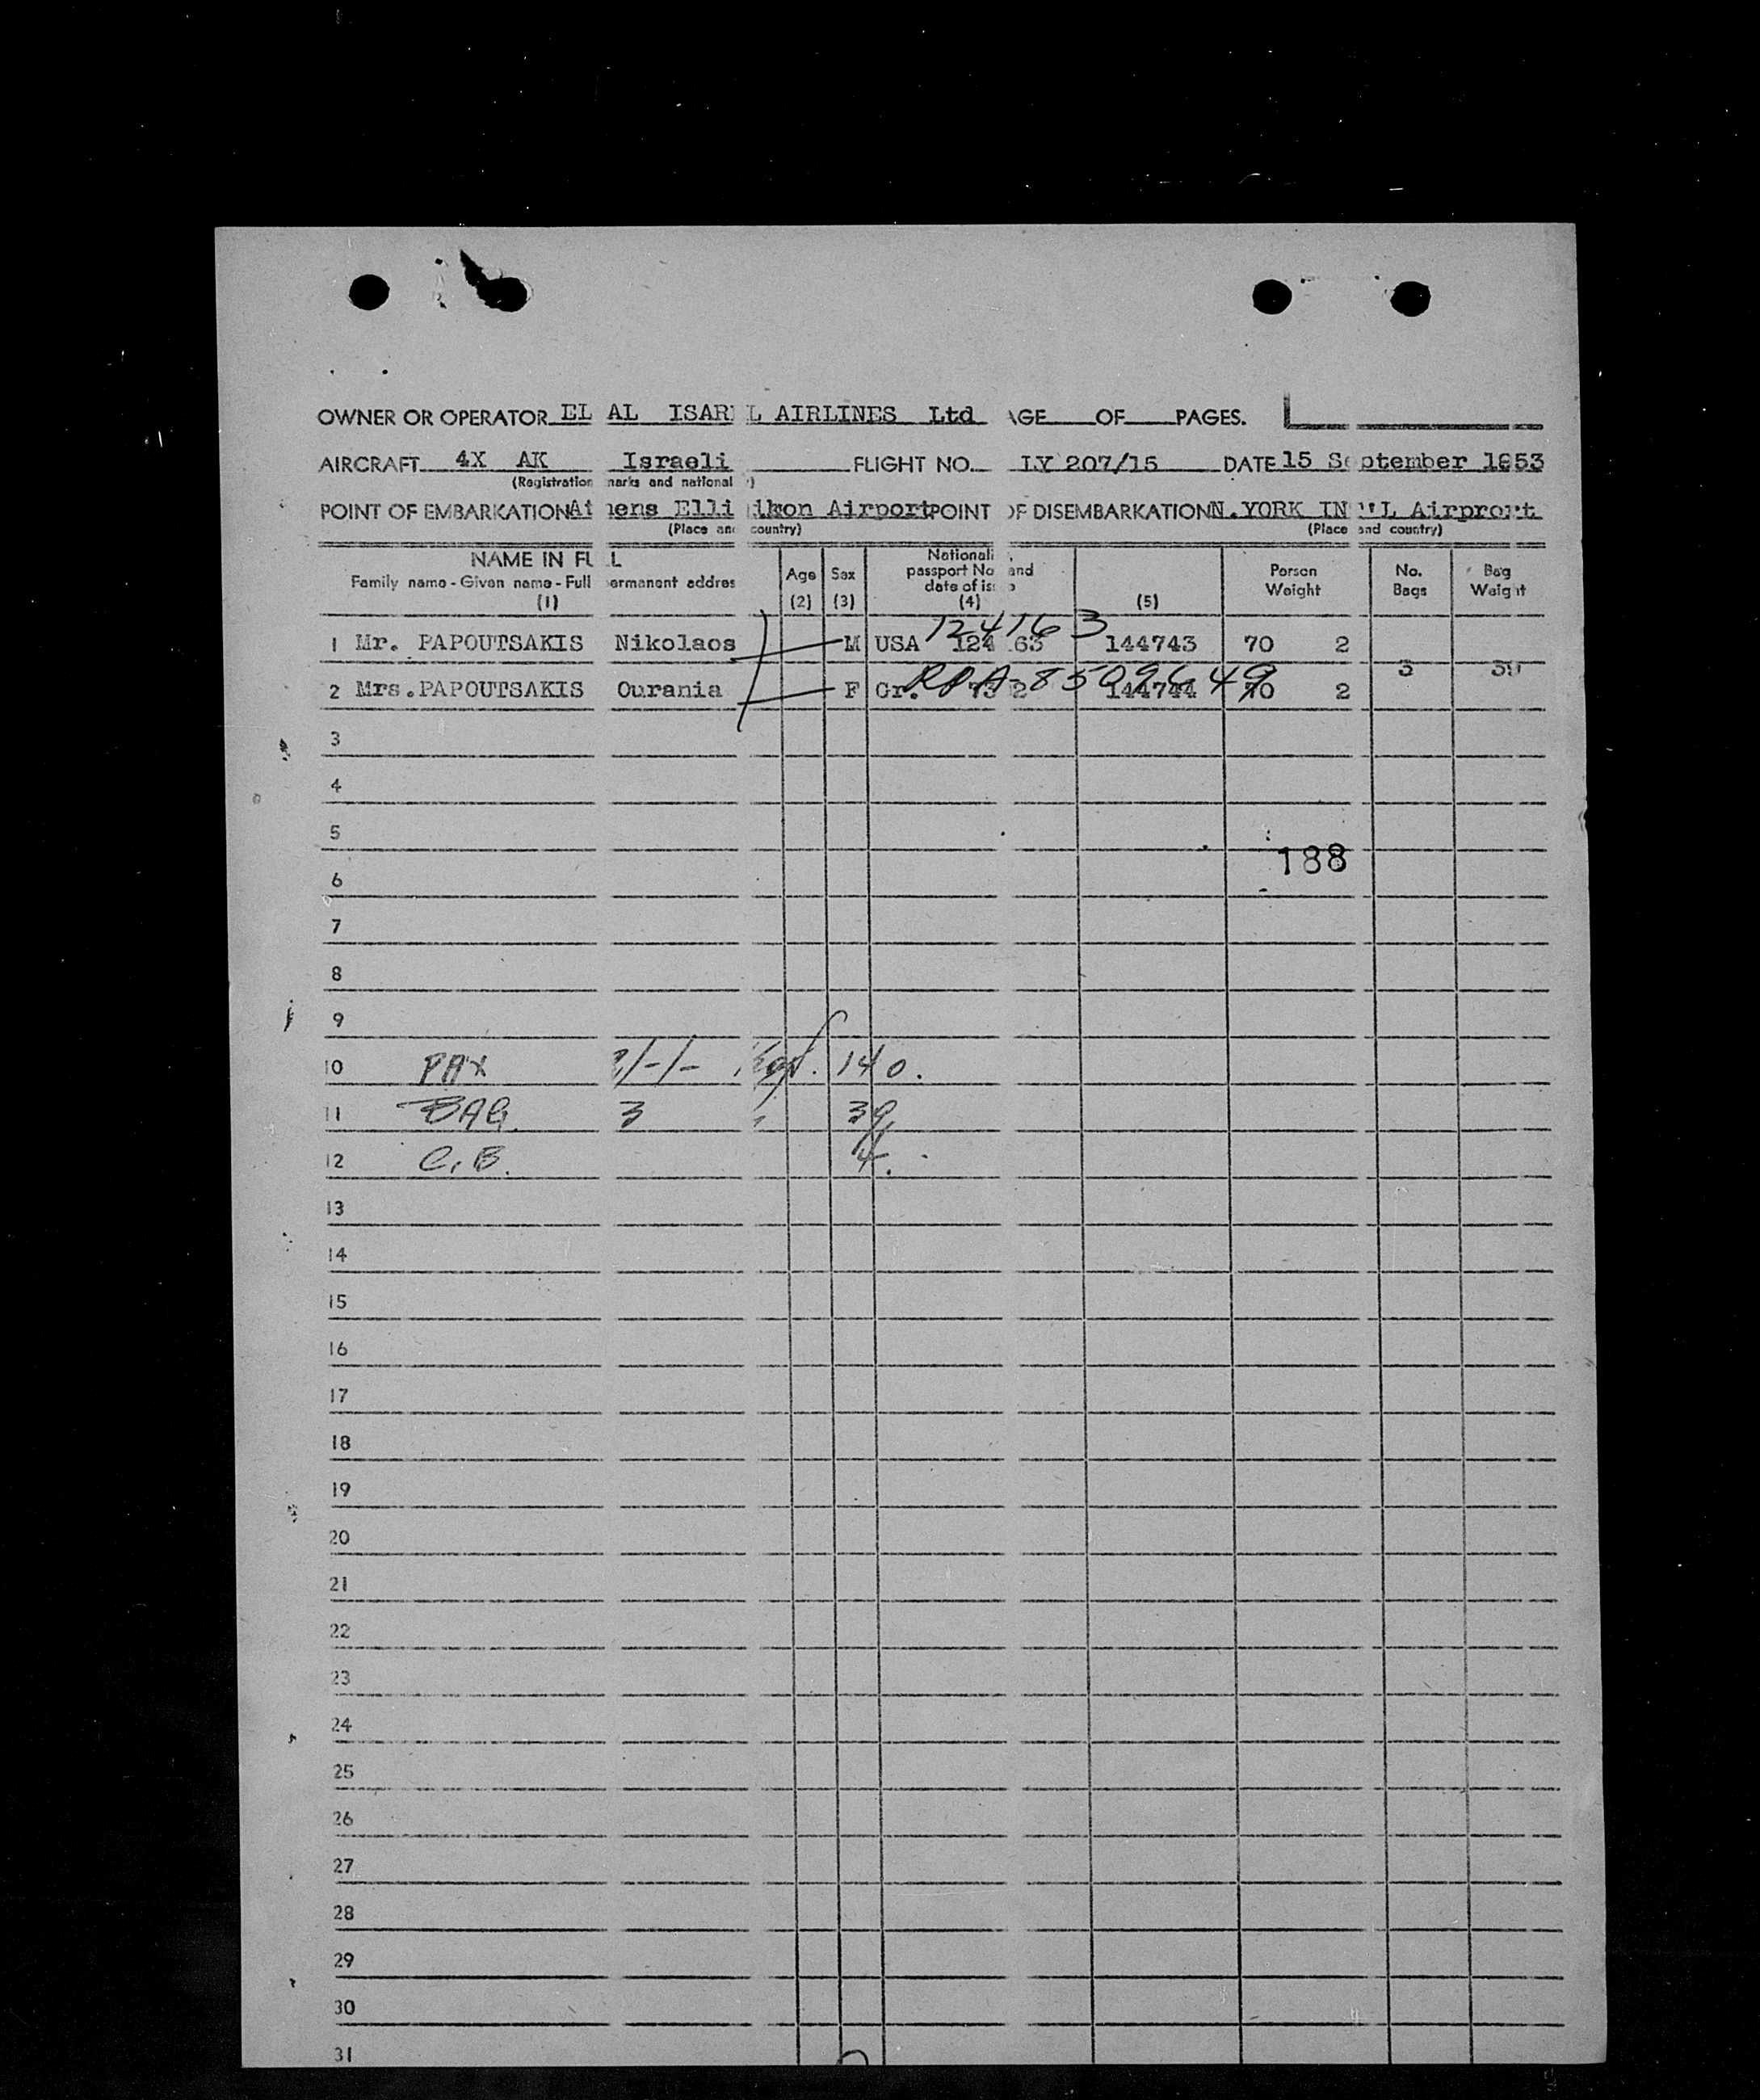 OWNER OR OPERATOR EL AL ISAR L AIRLINES Ltd AGE OF PAGES.
AIRCRAFT 4X AK Israeli FLIGHT NO. LY 207/15 DATE 15 S ptember 1953
(Registration marks and national )
POINT OF EMBARKATION At ens Elli ikon Airport POINT OF DISEMBARKATION N.YORK IN 'L Airprort
(Place and country) (Place and country)
NAME IN FU L
Family name - Given name - Full ermanent addres
(1)
Age
(2)
Sex
(3)
Nationali
passport No and
date of is
(4)
(5)
Person
Weight
No.
Bags
Bag
Weight
124163
1 Mr. PAPOUTSAKIS Nikolaos M USA 124 63 144743 70 2
3 39
RPA-8509649
2 Mrs. PAPOUTSAKIS Ourania F Gr. 144744 70 2
3
4
5
188
6
7
8
9
10 PAX 2/-/- 140.
11 BAG. 3 39
12 C.B. 4.
13
14
15
16
17
18
19
20
21
22
23
24
25
26
27
28
29
30
31